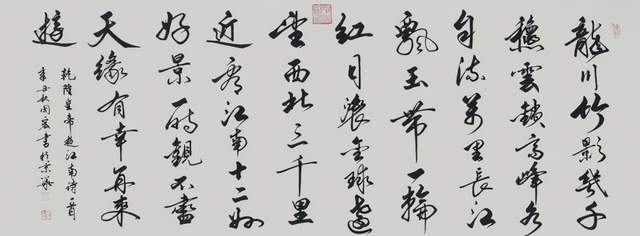 龍川竹影幾千
雲鎖高峰水
自流萬里長江
飄玉帶一輪
紅日滾金球遠
望西北三千里
近看江南十二州
好景一時觀不盡
天緣有幸再來
遊
乾隆皇帝遊江南詩一首
辛丑秋周宏書於京華